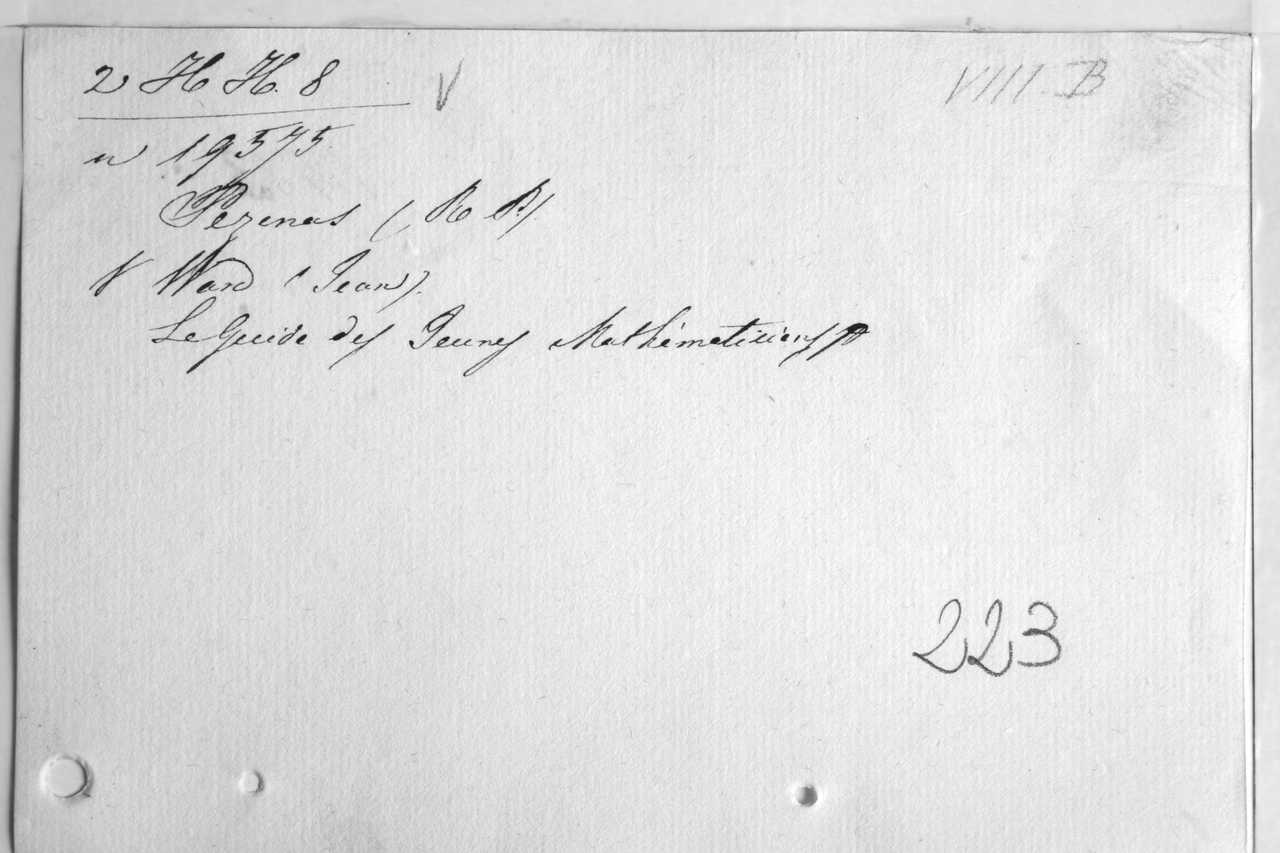 2 H H. 8 V VIII-B
n 19575
Pezenas (R P).
V Ward (Jean).
Le Guide des Jeunes Mathématiciens
223